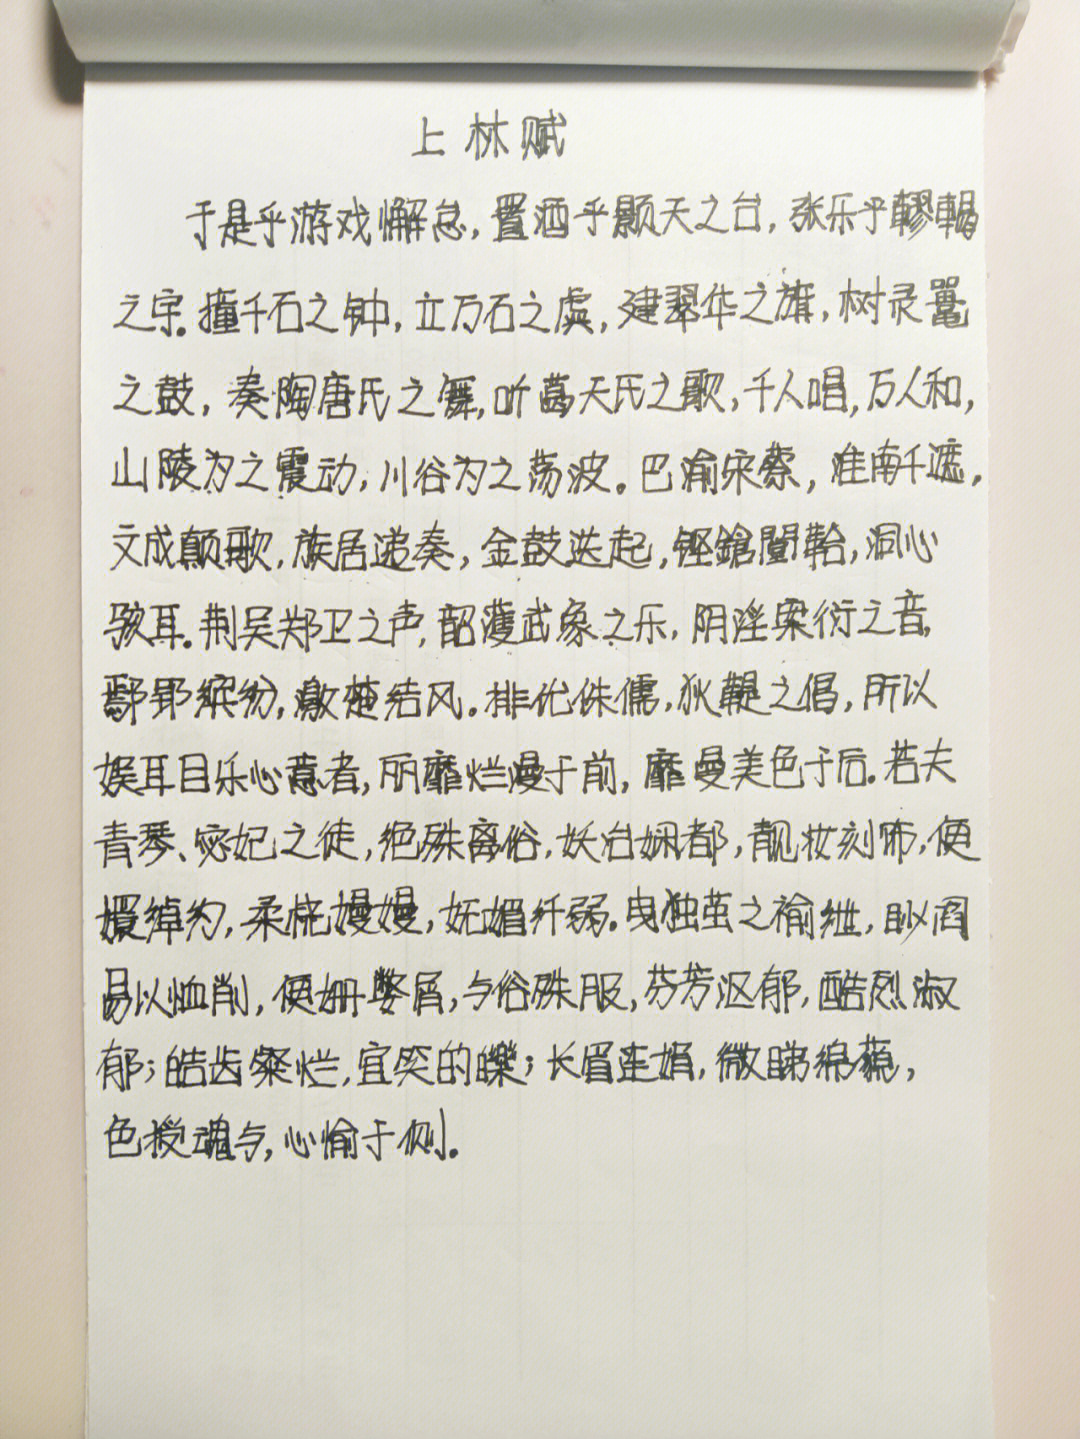 上林赋
于是乎游戏懈怠，置酒乎颢天之台，张乐乎轇輵
之宇。撞千石之钟，立万石之虡，建翠华之旗，树灵鼍
之鼓，奏陶唐氏之舞，听葛天氏之歌，千人唱，万人和，
山陵为之震动，川谷为之荡波。巴渝宋蔡，淮南干遮，
文成颠歌，族居递奏，金鼓迭起，铿鎗闛鞈，洞心
骇耳。荆吴郑卫之声，韶濩武象之乐，阴淫案衍之音，
鄢郢缤纷，激楚结风。排优侏儒，狄鞮之倡，所以
娱耳目乐心意者，丽靡烂漫于前，靡曼美色于后。若夫
青琴、宓妃之徒，绝殊离俗，妖冶娴都，靓妆刻饰，便
嬛绰约，柔桡嫚嫚，妩媚纤弱。曳独茧之褕绁，眇阎
易以恤削，便姗嫳屑，与俗殊服，芬芳沤郁，酷烈淑
郁；皓齿粲烂，宜笑的皪；长眉连娟，微睇绵藐，
色授魂与，心愉于侧。